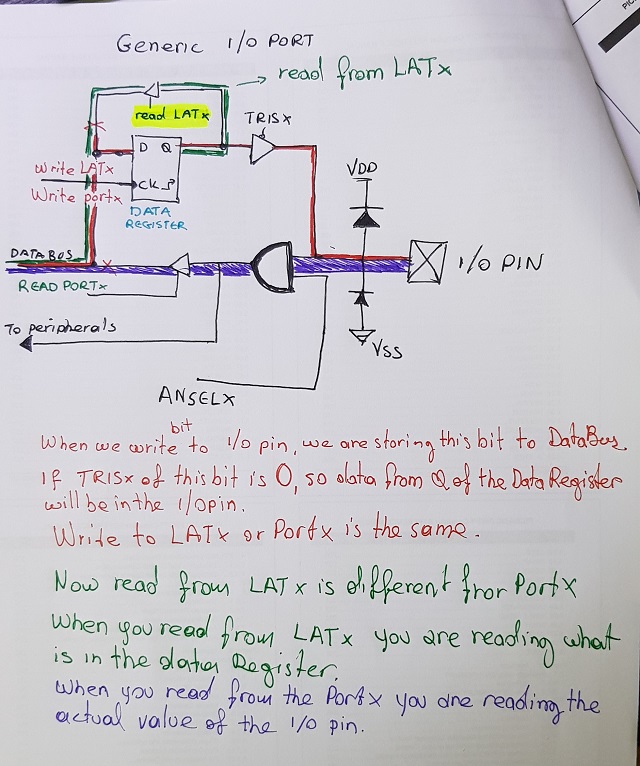 PIC
Generic I/O PORT
read from LATx
read LATx
TRISx
D Q
Write LATx
Write portx
CK
DATA
REGISTER
VDD
DATA BUS
READ PORTx
I/O PIN
To peripherals
VSS
ANSELX
bit
When we write to I/O pin, we are storing this bit to DataBus.
If TRISx of this bit is 0, so data from Q of the Data Register
will be in the I/O pin.
Write to LATx or Portx is the same.
Now read from LATx is different fror PortX
When you read from LATx you are reading what
is in the data Register.
When you read from the Portx you are reading the
actual value of the I/O pin.